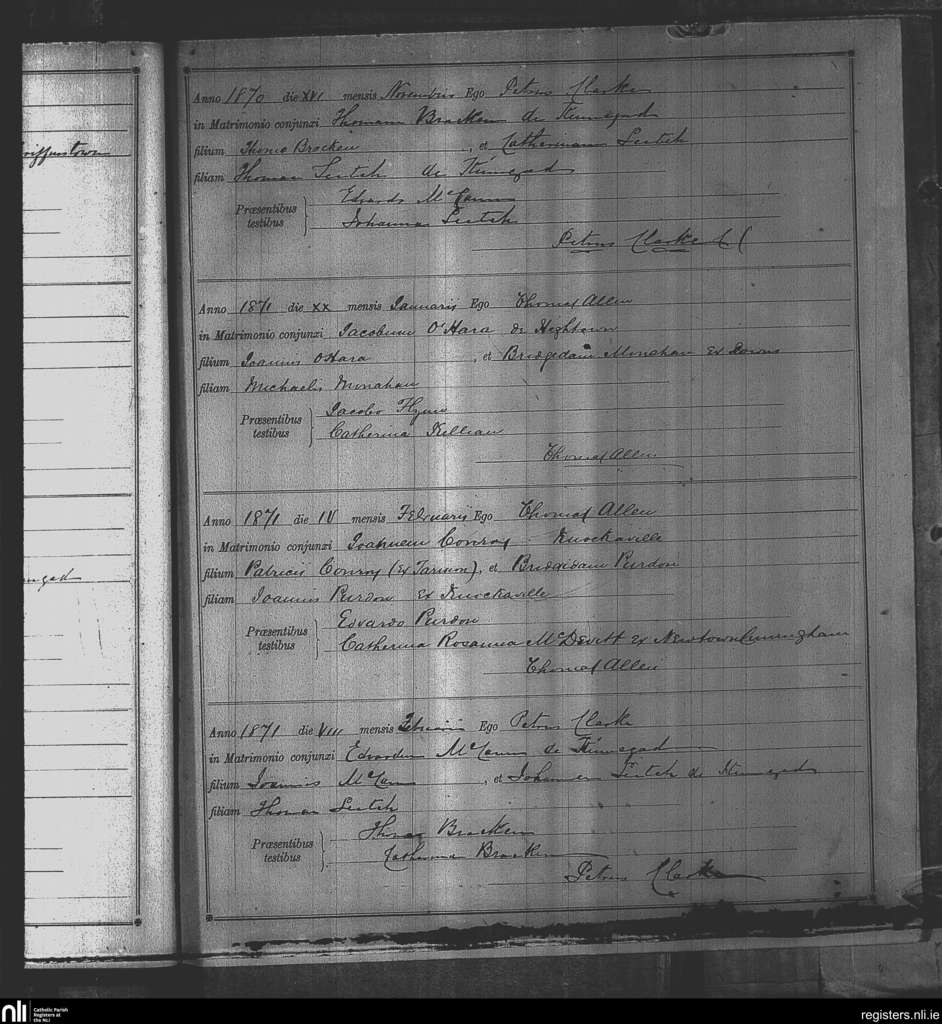 Anno 1870 die XVI mensis Novembris Ego Petrus Clarke
in Matrimonio conjunxi Thomam Bracken de Kinnegad
filium Thomae Bracken, et Catherinam Leitch
filiam Thomae Leitch de Kinnegad
Præsentibus testibus Edvardo McCann
Johanna Leitch
Petrus Clarke CC
Anno 1871 die XX mensis Januarii Ego Thomas Allen
in Matrimonio conjunxi Jacobum O'Hara de Hightown
filium Joannis O'Hara, et Bridgidam Monahan Ex Downs
filiam Michaelis Monahan
Præsentibus testibus Jacobo Flynn
Catherina Killian
Thomas Allen
Anno 1871 die IV mensis Februarii Ego Thomas Allen
in Matrimonio conjunxi Joannem Conroy Knockaville
filium Patricii Conroy (Ex), et Bridgidam Purdon
filiam Joannis Purdon Ex Knockaville
Præsentibus testibus Edvardo Purdon
Catherina Rosanna McDevitt Ex Newtowncunningham
Thomas Allen
Anno 1871 die VIII mensis Februarii Ego Petrus Clarke
in Matrimonio conjunxi Edvardum McCann de Kinnegad
filium Joannis McCann, et Johannam Leitch de Kinnegad
filiam Thomae Leitch
Præsentibus testibus Thomas Bracken
Catherina Bracken
Petrus Clarke
nli Catholic Parish Registers at the NLI
registers.nli.ie